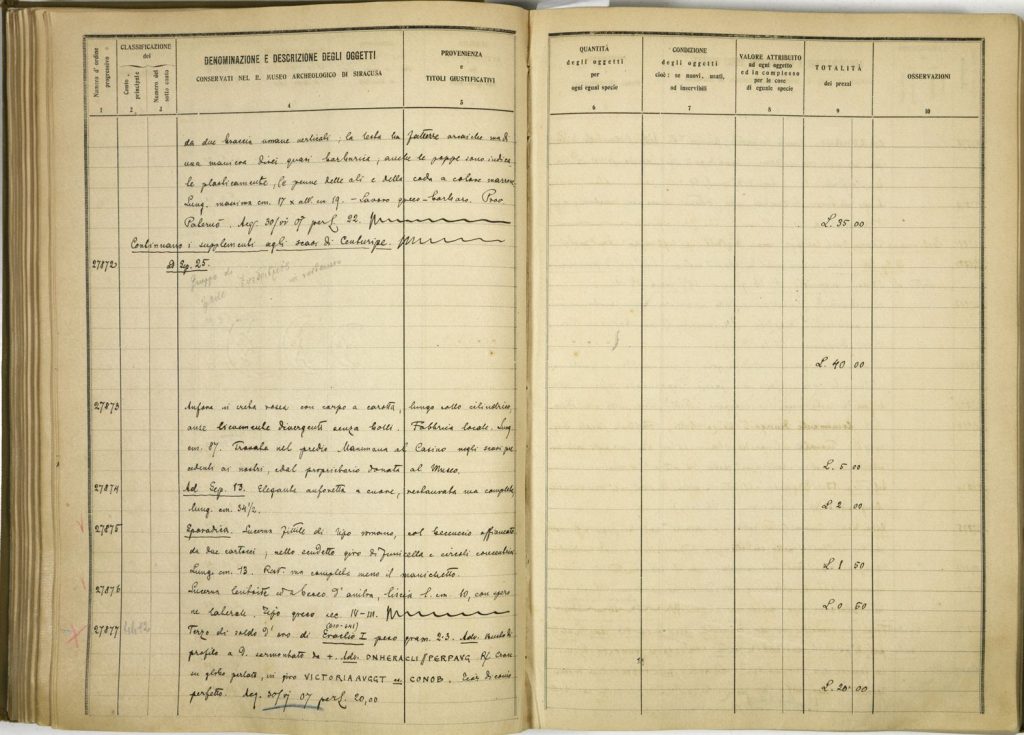 Numero d'ordine progressivo
CLASSIFICAZIONE
del
Conto principale
Numero del sotto conto
DENOMINAZIONE E DESCRIZIONE DEGLI OGGETTI
CONSERVATI NEL R. MUSEO ARCHEOLOGICO DI SIRACUSA
PROVENIENZA
e
TITOLI GIUSTIFICATIVI
QUANTITÀ
degli oggetti
per
ogni egual specie
CONDIZIONE
degli oggetti
cioè: se nuovi, usati,
od inservibili
VALORE ATTRIBUITO
ad ogni oggetto
ed in complesso
per le cose
di eguale specie
TOTALITÀ
dei prezzi
OSSERVAZIONI
1 2 3 4 5 6 7 8 9 10
da due braccia umane verticali; la testa ha fattezze arcaiche ma di
una maniera direi quasi barbarica, anche le poppe sono indica
te plasticamente, le penne delle ali e della coda a colore marrone
Lung. massima cm. 17 x alt. cm 19. - Lavoro greco-barbaro. Prov.
Palermo. Acq. 30/VI 07 per L. 22. L. 35 00
Continuano i supplementi agli scavi di Centuripe.
27872 ad Sep. 25.
Gruppo di
L. 40 00
27873 Anfora in creta rosea con corpo a carota, lungo collo cilindrico,
anse divergenti senza bolli. Fabbrica locale. Lung.
cm. 87. Trovata nel predio Mammana al Casino negli scavi pre
cedenti ai nostri, e dal proprietario donata al Museo. L. 5 00
27874 Ad Sep. 13. Elegante anforetta a cuore, restaurata ma completa
lung. cm. 34 1/2. L. 2 00
27875 Sporadica. Lucerna fittile di tipo romano, col beccuccio affiancato
da due cartocci, nello scudetto giro di funicella e circoli concentrici
Lung. cm. 13. Rest. ma completa meno il manichetto. L. 1 50
27876 Lucerna ed a becco d'ancora, liscia l. cm. 10, con
ne laterale. Tipo greco sec. IV-III. L. 0 50
27877 Terzo di soldo d'oro di Eraclio I peso gram. 2.3. Adv. Busto di
(610-641)
profilo a D. sormontato da + Adv. DNHERACLI PERPAVG R/ Croce
su globo perlato, in giro VICTORIAAVGGT CONOB. di cons.
perfetto. Acq. 30/VI 07 per L. 20,00 L. 20 00